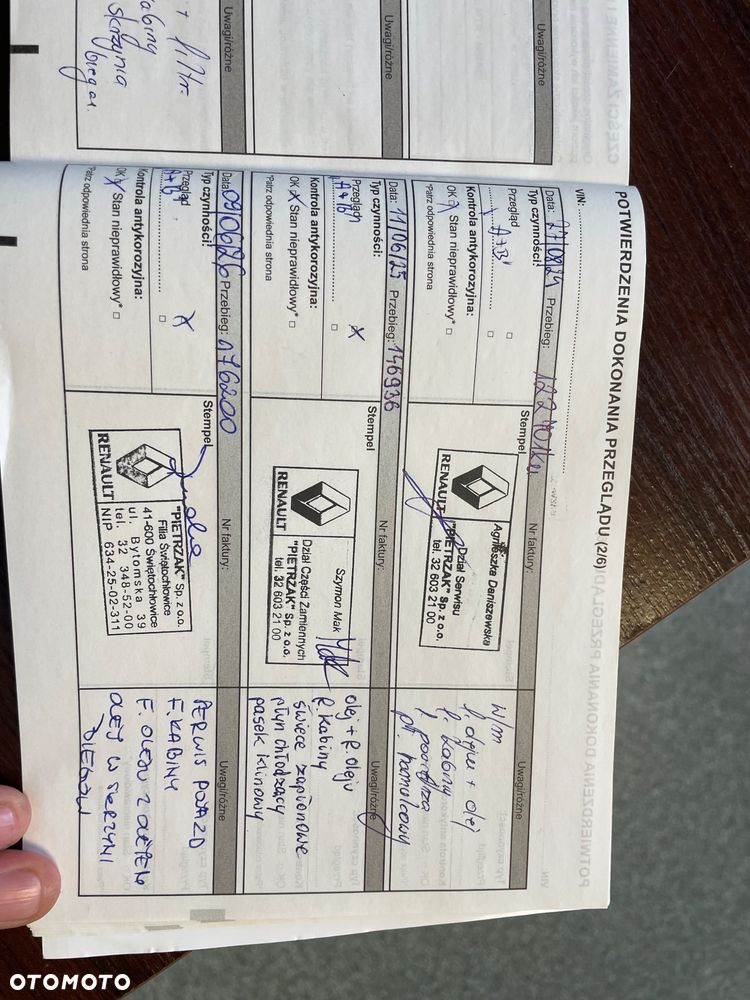 Uwagi/różne
+ filtr
kabiny
skrzynia
biegów
Uwagi/różne
Uwagi/różne
POTWIERDZENIA DOKONANIA PRZEGLĄDU (2/6)
VIN:
Data: 27/08/24 Przebieg: 122 701km
Nr faktury:
Uwagi/różne
Typ czynności:
Przegląd □
A+B □
Kontrola antykorozyjna:
OK x Stan nieprawidłowy* □
*Patrz odpowiednia strona
Stempel
Agnieszka Daniszewska
Dział Serwisu
"PIETRZAK" Sp. z o.o.
tel. 32 603 21 00
RENAULT
W/m
f. oleju + olej
f. kabiny
f. powietrza
pł. hamulcowy
Data: 11/06/25 Przebieg: 146936
Nr faktury:
Uwagi/różne
Typ czynności:
Przegląd x
A+B □
Kontrola antykorozyjna:
OK x Stan nieprawidłowy* □
*Patrz odpowiednia strona
Stempel
Szymon Mak
Dział Części Zamiennych
"PIETRZAK" Sp. z o.o.
tel. 32 603 21 00
RENAULT
olej + f. oleju
f. kabiny
świece zapłonowe
płyn chłodzący
pasek klinowy
Data: 09/06/26 Przebieg: 176200
Nr faktury:
Uwagi/różne
Typ czynności:
Przegląd x
A+B □
Kontrola antykorozyjna:
OK x Stan nieprawidłowy* □
*Patrz odpowiednia strona
Stempel
"PIETRZAK" Sp. z o.o.
Filia Świętochłowice
41-600 Świętochłowice
ul. Bytomska 39
tel. 32 348-52-00
NIP 634-25-02-311
RENAULT
F. KABINY
F. OLEJU Z OLEJEM
OLEJ W SKRZYNI
BIEGÓW
OTOMOTO